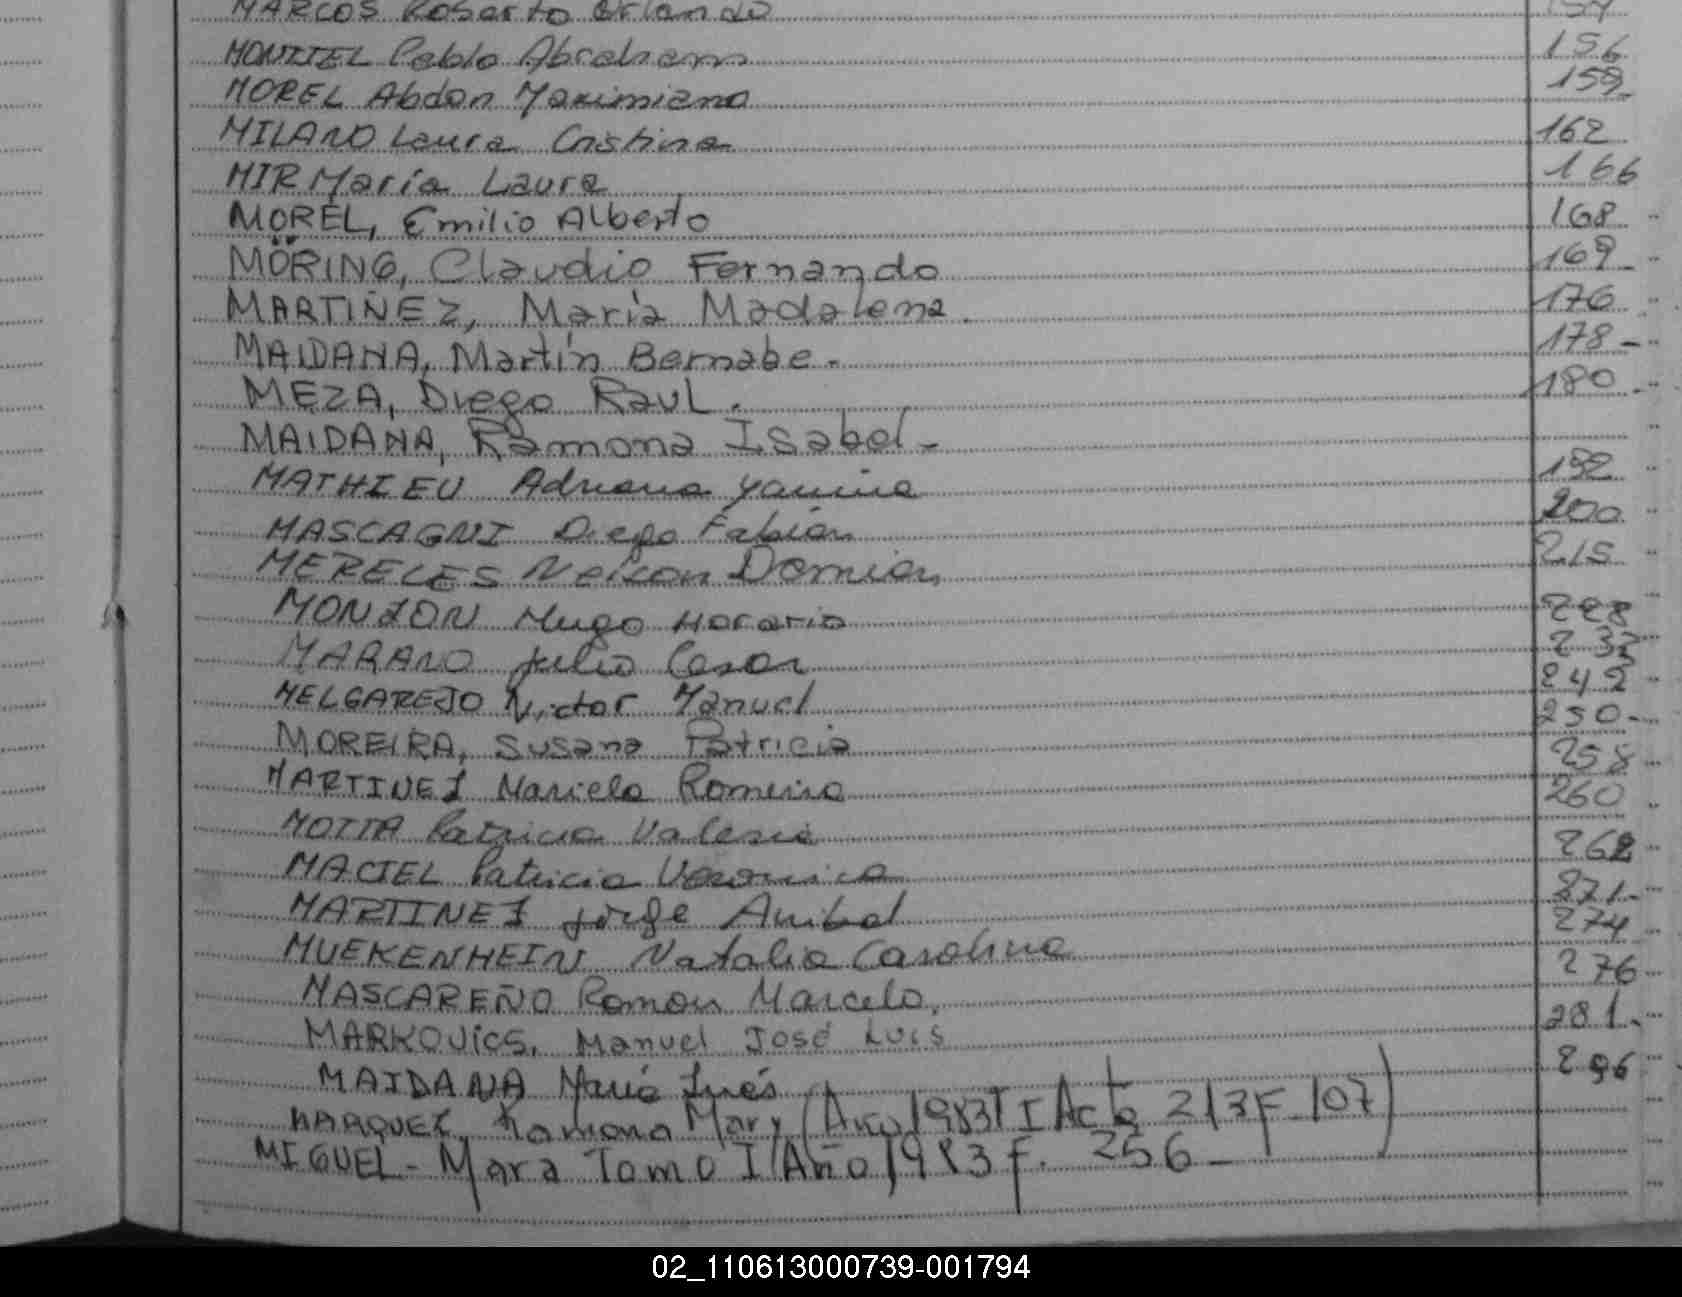 MARCOS Roberto Orlando 154
MONTIEL Pablo Abraham 156
MOREL Abdon Maximiano 159
MILANO Laura Cristina 162
MIR Maria Laura 166
MOREL, Emilio Alberto 168
MÖRING, Claudio Fernando 169
MARTIÑEZ, María Madalena. 176
MAIDANA, Martín Bernabe. 178
MEZA, Diego Raul. 180
MAIDANA, Ramona Isabel
MATHIEU Adriana Yanina 192
MASCAGNI Diego Fabián 200
MERELES Nelson Damian 215
MONZON Hugo Horacio 228
MARANO Julio Cesar
MELGAREJO Victor Manuel 242
MOREIRA, Susana Patricia 250
MARTINEZ Mariela Romina 258
MOTTA Patricia Valeria 260
MACIEL Patricia Veronica 262
MARTINEZ Jorge Anibal 271
MUEKENHEIN Natalia Carolina 274
MASCAREÑO Ramon Marcelo. 276
MARKOVICS, Manuel José Luis 281
MAIDANA María Inés 296
MARQUEZ, Ramona Mary (Año 1983 T I Acta 213 F 107)
MIGUEL - Mara Tomo I Año 1983 F. 256
02_110613000739-001794